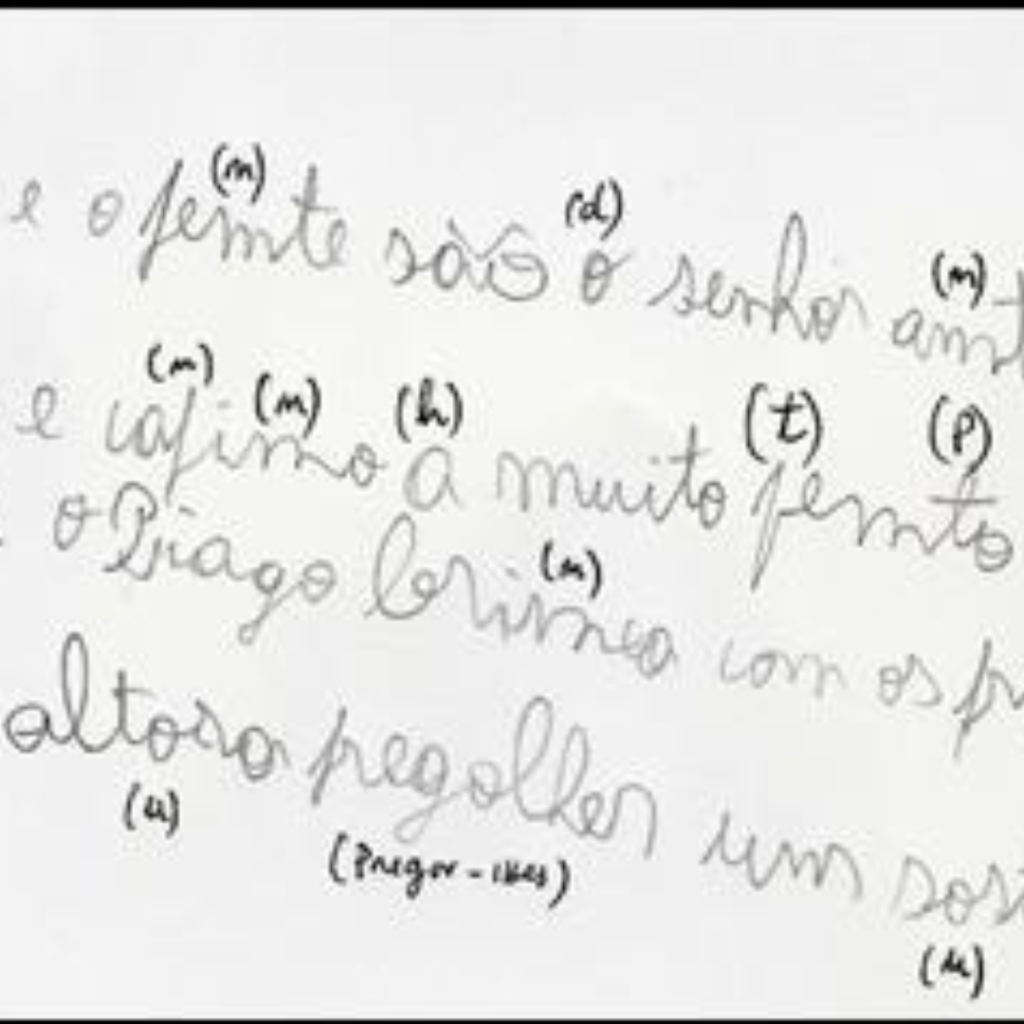 (n) (d) (n)
e o femte são o senhor amt
(n) (n) (h) (t) (p)
e cafimo a muito femto
(n)
o Piago brinca com os pr
altora pregolher um sosi
(u) (Pregar-lhes) (u)